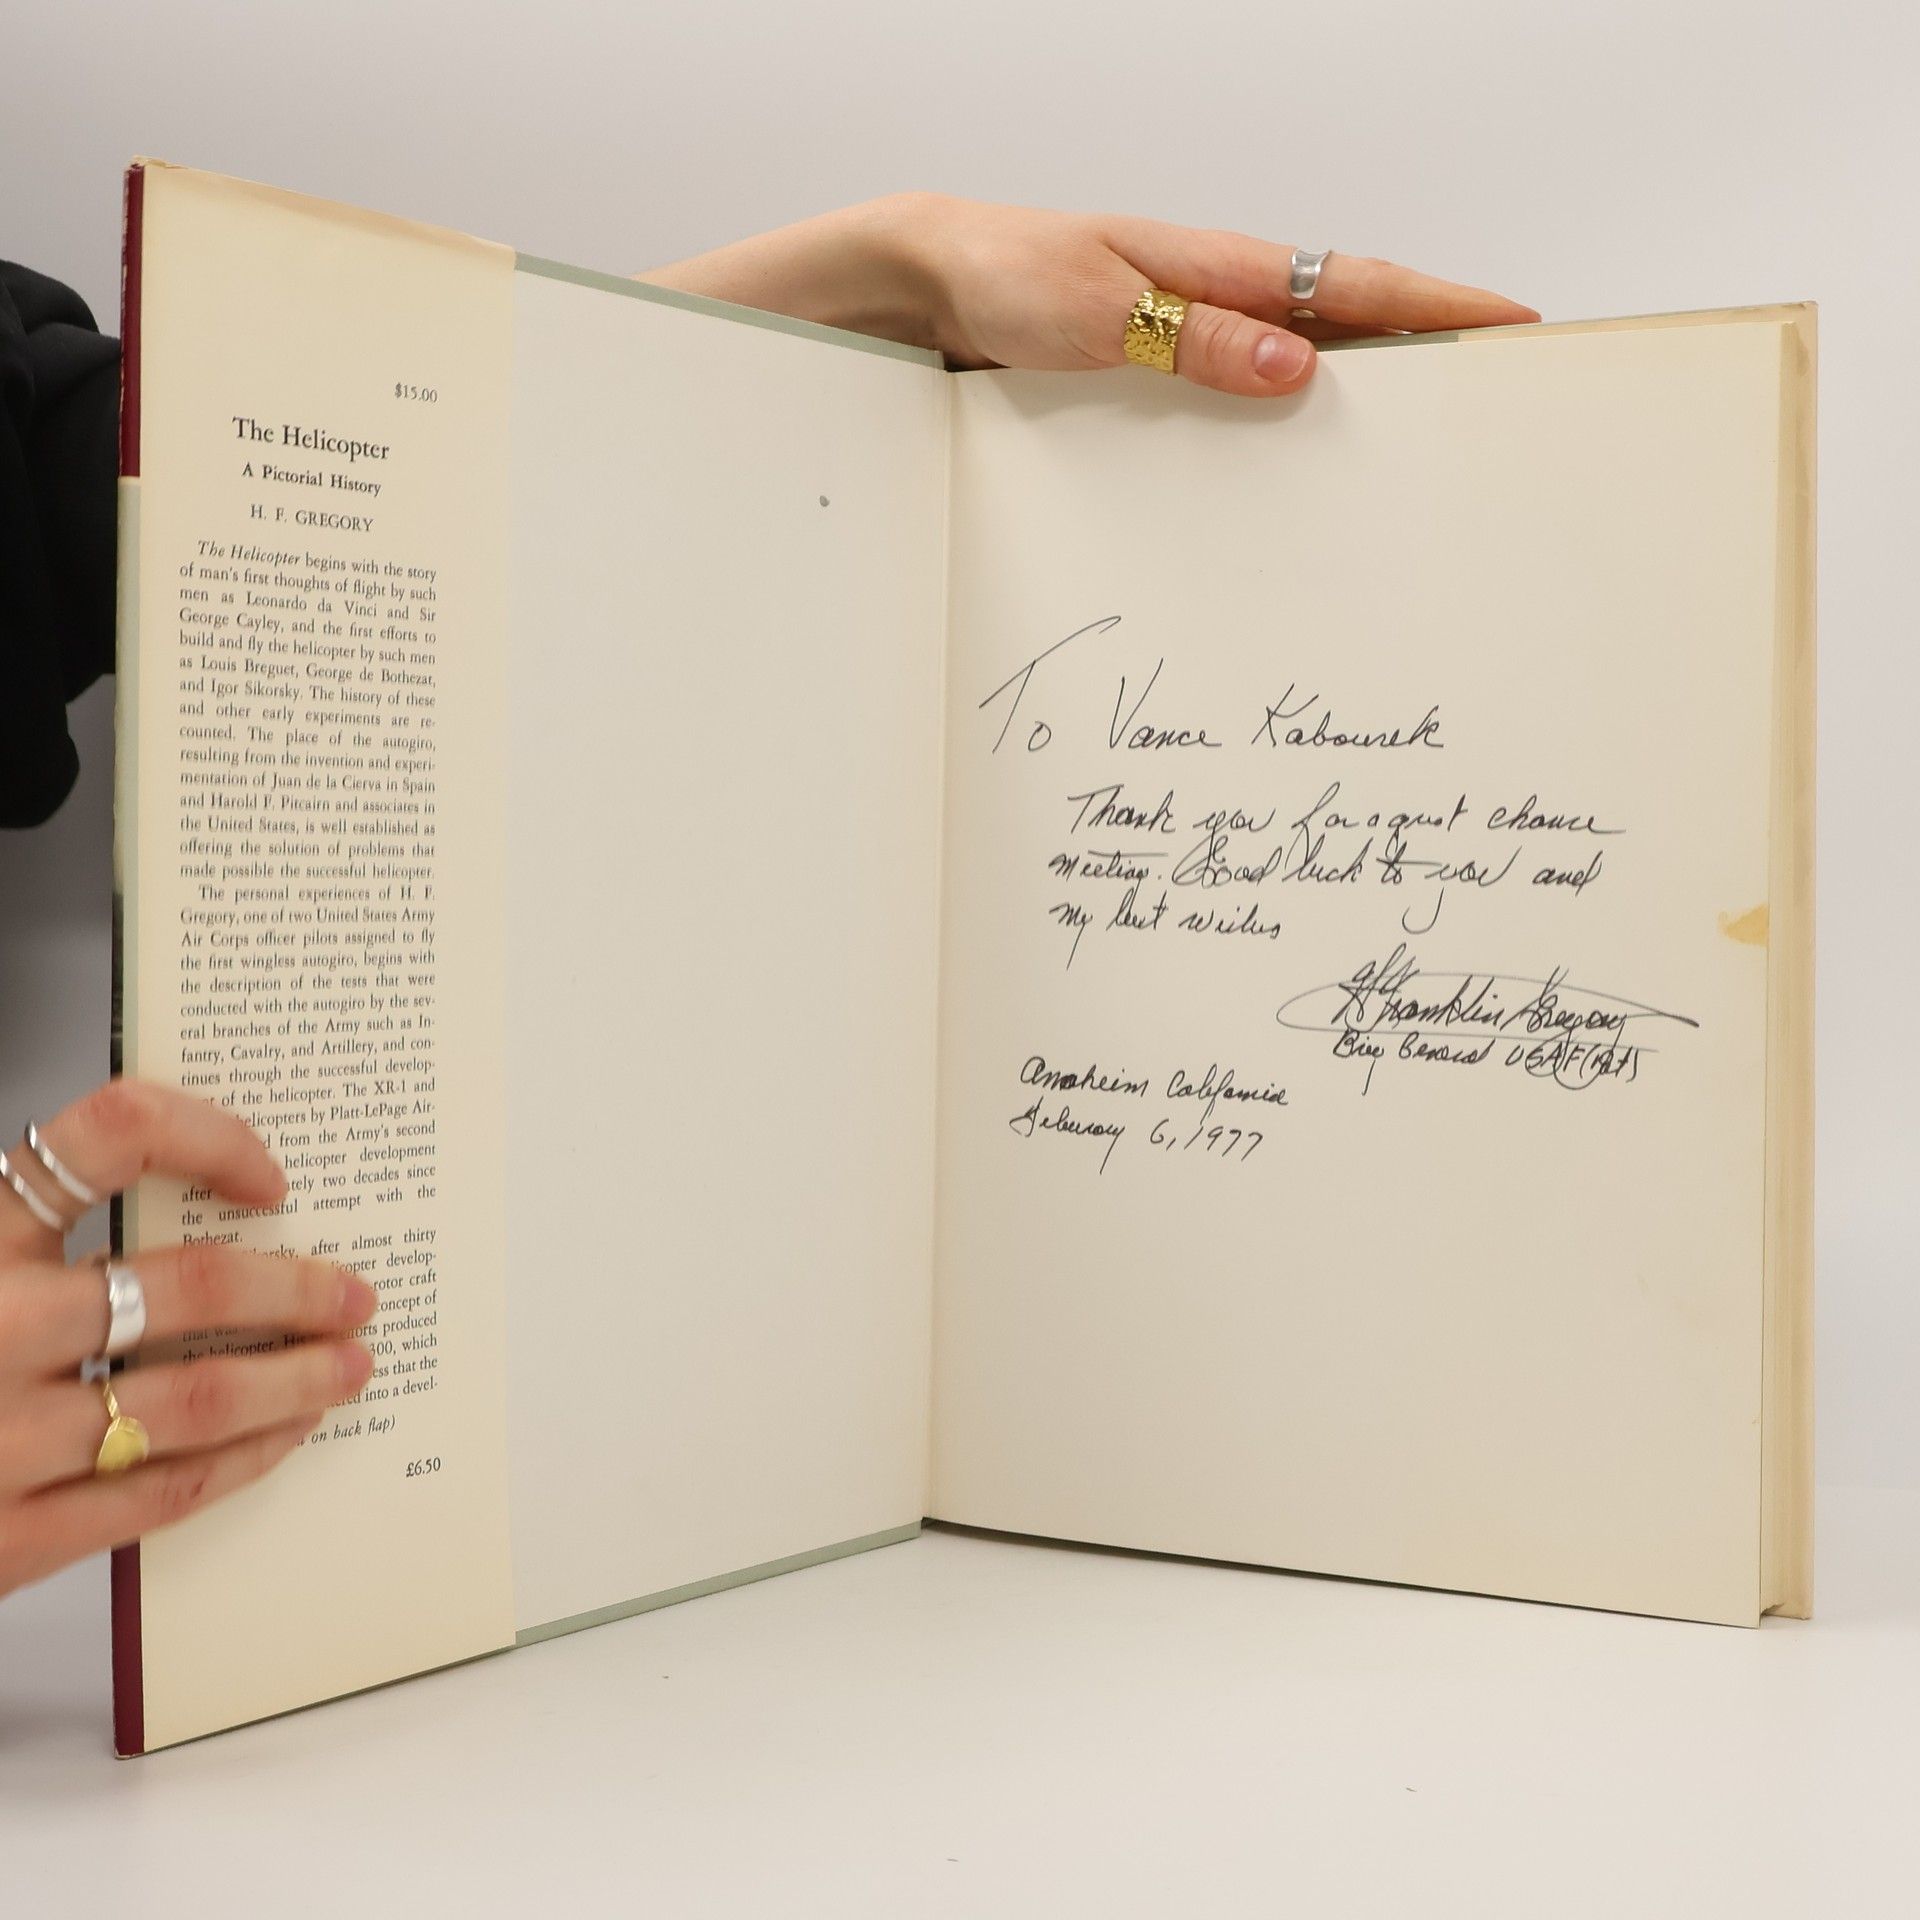 $15.00
The Helicopter
A Pictorial History
H. F. GREGORY
The Helicopter begins with the story
of man's first thoughts of flight by such
men as Leonardo da Vinci and Sir
George Cayley, and the first efforts to
build and fly the helicopter by such men
as Louis Breguet, George de Bothezat,
and Igor Sikorsky. The history of these
and other early experiments are re-
counted. The place of the autogiro,
resulting from the invention and experi-
mentation of Juan de la Cierva in Spain
and Harold F. Pitcairn and associates in
the United States, is well established as
offering the solution of problems that
made possible the successful helicopter.
The personal experiences of H. F.
Gregory, one of two United States Army
Air Corps officer pilots assigned to fly
the first wingless autogiro, begins with
the description of the tests that were
conducted with the autogiro by the sev-
eral branches of the Army such as In-
fantry, Cavalry, and Artillery, and con-
tinues through the successful develop-
of the helicopter. The XR-1 and
helicopters by Platt-LePage Air-
from the Army's second
helicopter development
after two decades since
the unsuccessful attempt with the
Bothezat.
after almost thirty
develop-
-rotor craft
concept of
that was
the helicopter. produced
300, which
that the
into a devel-
on back flap)
£6.50
To Vance Kabourek
Thank you for a great chance
meeting. Good luck to you and
my best wishes
H Franklin Gregory
Brig General USAF (Ret)
Anaheim California
February 6, 1977